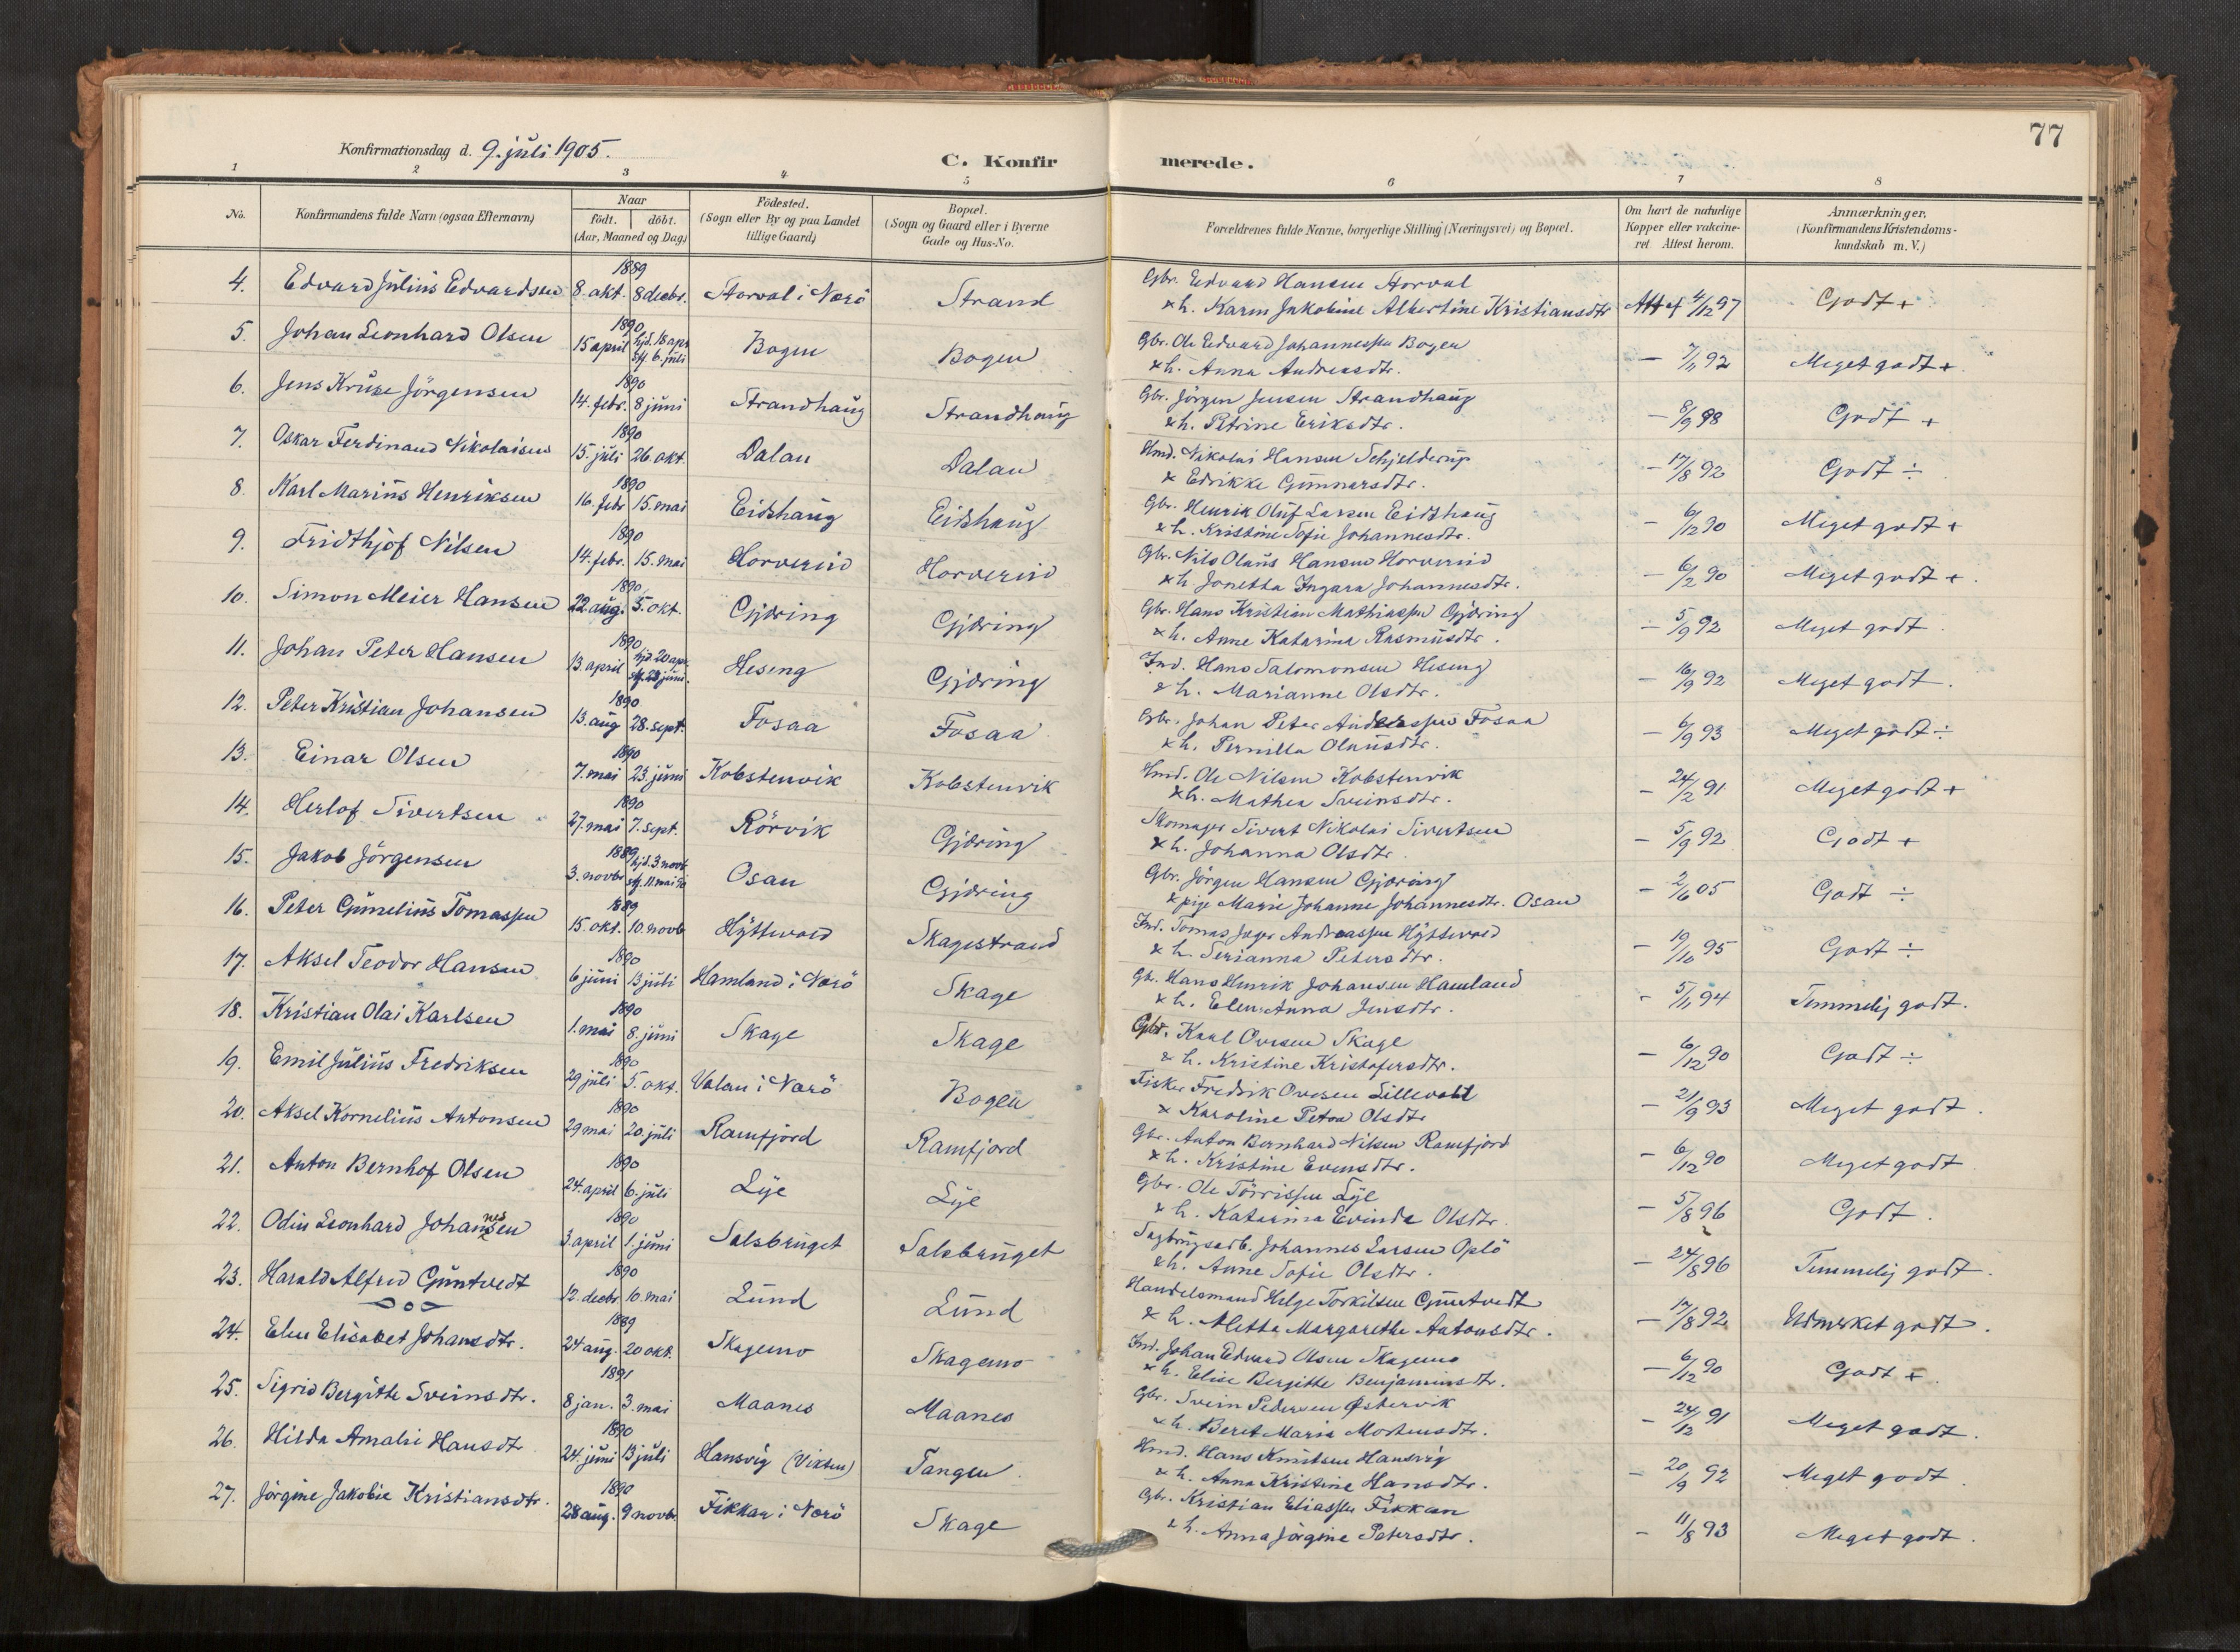 77
Konfirmationsdag d. 9. juli 1905.
C. Konfirmerede.
1 2 3 4 5 6 7 8
No. Konfirmandens fulde Navn (ogsaa Efternavn) Naar födt. döbt. (Aar, Maaned og Dag) Födested. (Sogn eller By og paa Landet tillige Gaard) Bopæl. (Sogn og Gaard eller i Byerne Gade og Hus-No. Forældrenes fulde Navne, borgerlige Stilling (Næringsvei) og Bopæl. Om havt de naturlige Kopper eller vakcineret Attest herom. Anmærkninger. (Konfirmandens Kristendomskundskab m. V.)
1889
4. Edvard Julius Edvardsen 8. okt. 8 decbr. Storval i Nærö Strand Gbr. Edvard Hansen Storval
& h. Karen Jakobine Albertine Kristiansdtr Att af 4/12 97 Godt +
1890
5. Johan Leonhard Olsen 15 april hjd. 18 apr. stf. 6. juli Bogen Bogen Gbr. Ole Edvard Johannessen Bogen
& h. Anna Andreasdtr. – 7/11 92 Meget godt +.
1890
6. Jens Kruse Jörgensen 14. febr. 8 juni Strandhaug Strandhaug Gbr. Jörgen Jensen Strandhaug
& h. Petrine Eriksdtr. – 8/9 98 Godt +
1890
7. Oskar Ferdinand Nikolaisen 15. juli 26. okt. Dalan Dalan Hmd. Nikolai Hansen Schjelderup
& Edrikke Gunnarsdtr. – 17/8 92 Godt ÷
1890
8. Karl Marius Henriksen 16. febr 15. mai Eidshaug Eidshaug Gbr. Henrik Oluf Larsen Eidshaug
& h. Kristine Sofie Johannesdtr. – 6/12 90 Meget godt +
1890
9. Fridthjof Nilsen 14. febr. 15. mai Horvereid Horvereid Gbr. Nils Olaus Hansen Horvereid
& h. Jonetha Ingara Johannesdtr. – 6/2 90 Meget godt +.
1890
10. Simon Meier Hansen 22. aug. 5. okt. Gjæring Gjæring Gbr. Hans Kristian Mathiassen Gjæring
& h. Anne Katarina Rasmusdtr. – 5/9 92 Meget godt.
1890
11. Johan Peter Hansen 13. april hjd. 20 apr. stf. 29 juni. Heseng Gjæring Ind. Hans Salomonsen Heseng
& h. Marianne Olsdtr. – 16/9 92 Meget godt.
1890
12. Peter Kristian Johansen 13. aug 28. sept. Fosaa Fosaa Gbr. Johan Peter Anderssen Fosaa
& h. Pernilla Olausdtr. – 6/9 93 Meget godt ÷
1890
13. Einar Olsen 7. mai 23. juni Kobstenvik Kobstenvik Hmd. Ole Nilsen Kobstenvik
& h. Mathea Sveinsdtr. – 24/2 91 Meget godt +
1890
14. Herlof Sivertsen 27. mai 7. sept. Rörvik Gjæring Skomager Sivert Nikolai Sivertsen
& h. Johanna Olsdtr. – 5/9 92 Godt +
1889
15. Jakob Jörgensen 3. novbr hjd. 3 novb stf. 11. mai 90 Osan Gjæring Gbr. Jörgen Hansen Gjæring
& pige Marie Johanne Johannesdtr. Osan – 2/6 05 Godt ÷
1889
16. Peter Gunelius Tomassen 15. okt. 10. novb Hyttevold Skagestrand Ind. Tomas Jæger Andreassen Hyttevold
& h. Serianna Petersdtr. – 19/10 95 Godt ÷
1890
17. Aksel Teodor Hansen 6 juni 13 juli Hamland i Nærö Skage Gbr. Hans Henrik Johansen Hamland
& h. Elen Anna Jensdtr. – 5/11 94 Temmelig godt.
1890
18. Kristian Olai Karlsen 1. mai 8. juni Skage Skage Gbr. Karl Ovesen Skage
& h. Kristine Kristofersdtr. – 6/12 90 Godt ÷
1890
19. Emil Julius Fredriksen 29 juli 5. okt. Valan i Nærö Bogen Fisker Fredrik Ovesen Lillevalt
& Karoline Petra Olsdtr – 21/9 93 Meget godt.
1890
20. Aksel Kornelius Antonsen 29 mai 20. juli Ramfjord Ramfjord Gbr. Anton Bernhard Nilsen Ramfjord
& h. Kristine Evensdtr. – 6/12 90 Meget godt
1890
21. Anton Bernhof Olsen 24. april 6. juli Lye Lye Gbr. Ole Törrissen Lye
& h. Katarina Evinda Olsdtr. – 5/8 96 Godt.
1890
22. Odin Leonhard Johannesen 3. april 1. juni Salsbruget Salsbruget Sagbrugsarb. Johannes Larsen Oplö
& h. Anne Sofie Olsdtr. – 24/8 96 Temmelig godt.
1890
23. Harald Alfred Guntvedt 12. decbr. 10. mai Lund Lund Handelsmand Helge Torkilsen Guntvedt
& h. Aletha Margarethe Antonsdtr. – 17/8 92 Udmerket godt.
1889
24. Elen Elisabet Johansdtr. 24 aug. 20 okt. Skagemo Skagemo Ind. Johan Edvard Olsen Skagemo
& h. Elise Bergitte Benjaminsdtr. – 6/12 90 Godt +.
1891
25. Sigrid Bergitte Sveinsdtr. 8 jan. 3. mai Maanes Maanes Gbr. Svein Pedersen Østervik
& h. Beret Maria Mortensdtr. – 24/12 91 Meget godt.
1890
26. Hilda Amalie Hansdtr 24. juni 13 juli Hansvig (Vikten) Tangen Hmd. Hans Knutsen Hansvig
& h. Anna Kristine Hansdtr. – 20/9 92 Meget godt
1890
27. Jörgine Jakobie Kristiansdtr. 28 aug. 9 novbr. Fikkan i Nærö Skage Gbr. Kristian Eliassen Fikkan
& h. Anna Jörgine Petersdtr. – 11/8 93 Meget godt.